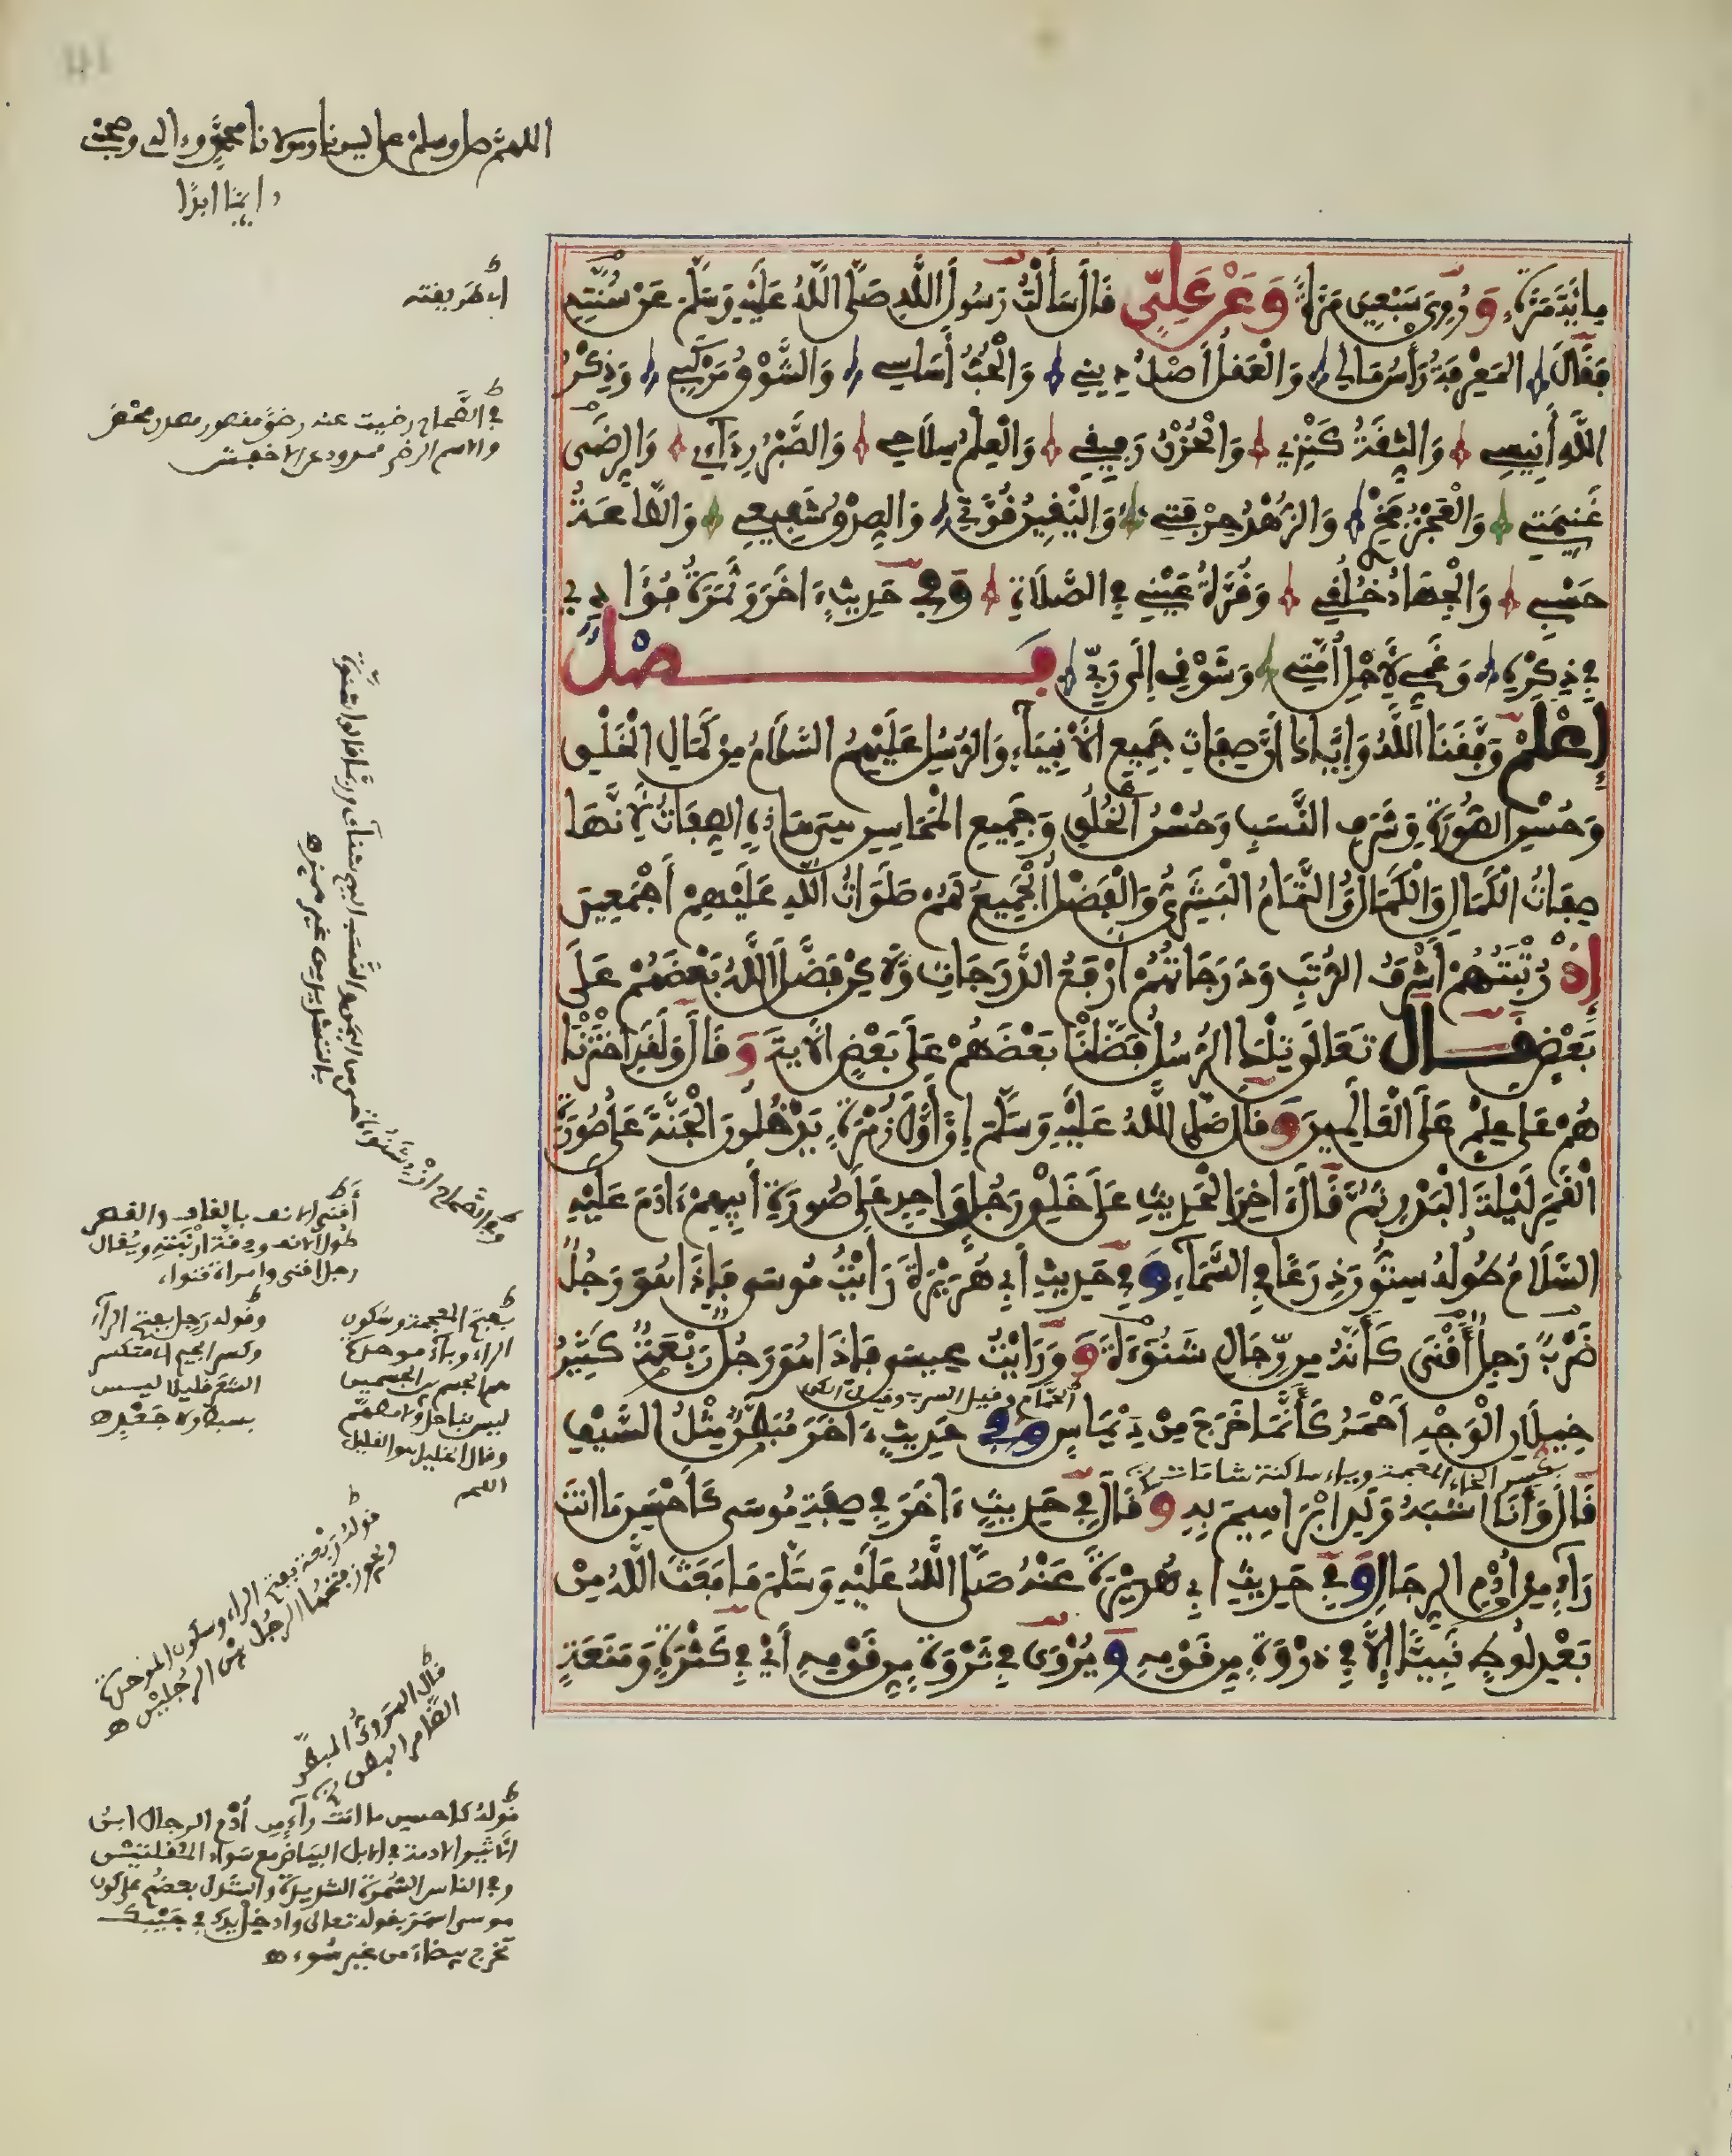 اللهم صل وسلم على سيدنا ومولانا محمد وءاله وصحبه
دايما ابدا
مِائَةَ مَرَّةٍ وَرُوِيَ سَبْعِينَ مَرَّةً وَعَنْ عَلِيٍّ قَالَ سَأَلْتُ رَسُولَ اللَّهِ صَلَّى اللَّهُ عَلَيْهِ وَسَلَّمَ عَنْ سُنَّتِهِ
فَقَالَ الْمَعْرِفَةُ رَأْسُ مَالِي وَالْعَقْلُ أَصْلُ دِينِي وَالْحُبُّ أَسَاسِي وَالشَّوْقُ مَرْكَبِي وَذِكْرُ
اللَّهِ أَنِيسِي وَالثِّقَةُ كَنْزِي وَالْحُزْنُ رَفِيقِي وَالْعِلْمُ سِلَاحِي وَالصَّبْرُ رِدَآئِي وَالرِّضَى
غَنِيمَتِي وَالْعَجْزُ فَخْرِي وَالزُّهْدُ حِرْفَتِي وَالْيَقِينُ قُوَّتِي وَالصِّدْقُ شَفِيعِي وَالطَّاعَةُ
حَسْبِي وَالْجِهَادُ خُلُقِي وَقُرَّةُ عَيْنِي فِي الصَّلَاةِ وَفِي حَدِيثٍ ءَاخَرَ وَثَمَرَةُ فُؤَادِي
فِي ذِكْرِهِ وَغَمِّي لِأَجْلِ أُمَّتِي وَشَوْقِي إِلَى رَبِّي فَصْلٌ
إِعْلَمْ وَفَّقَنَا اللَّهُ وَإِيَّاكَ أَنَّ صِفَاتِ جَمِيعِ الْأَنْبِيَاءِ وَالرُّسُلِ عَلَيْهِمُ السَّلَامُ مِنْ كَمَالِ الْخَلْقِ
وَحُسْنِ الصُّورَةِ وَشَرَفِ النَّسَبِ وَحُسْنِ الْخُلُقِ وَجَمِيعِ الْمَحَاسِنِ هِيَ هَاذِهِ الصِّفَاتُ لِأَنَّهَا
صِفَاتُ الْكَمَالِ وَالْكَمَالُ وَالتَّمَامُ الْبَشَرِيُّ وَالْفَضْلُ الْجَمِيعُ لَهُمْ صَلَوَاتُ اللَّهِ عَلَيْهِمْ أَجْمَعِينَ
إِذْ رُتْبَتُهُمْ أَشْرَفُ الرُّتَبِ وَدَرَجَاتُهُمْ أَرْفَعُ الدَّرَجَاتِ وَلَاكِنْ فَضَّلَ اللَّهُ بَعْضَهُمْ عَلَى
بَعْضٍ قَالَ تَعَالَى تِلْكَ الرُّسُلُ فَضَّلْنَا بَعْضَهُمْ عَلَى بَعْضٍ الْآيَةَ وَقَالَ وَلَقَدِ اخْتَرْنَا
هُمْ عَلَى عِلْمٍ عَلَى الْعَالَمِينَ وَقَالَ صَلَّى اللَّهُ عَلَيْهِ وَسَلَّمَ إِنَّ أَوَّلَ زُمْرَةٍ يَدْخُلُونَ الْجَنَّةَ عَلَى صُورَةِ
الْقَمَرِ لَيْلَةَ الْبَدْرِ ثُمَّ قَالَ ءَاخِرَ الْحَدِيثِ عَلَى خَلْقِ رَجُلٍ وَاحِدٍ عَلَى صُورَةِ أَبِيهِمْ ءَادَمَ عَلَيْهِ
السَّلَامُ طُولُهُ سِتُّونَ ذِرَاعًا فِي السَّمَآءِ وَفِي حَدِيثِ أَبِي هُرَيْرَةَ رَأَيْتُ مُوسَى فَإِذَا هُوَ رَجُلٌ
ضَرْبٌ رَجِلٌ أَقْنَى كَأَنَّهُ مِنْ رِجَالِ شَنُوءَةَ وَرَأَيْتُ عِيسَى فَإِذَا هُوَ رَجُلٌ رَبْعَةٌ كَثِيرُ
خِيلَانِ الْوَجْهِ أَحْمَرُ كَأَنَّمَا خَرَجَ مِنْ دِيمَاسٍ وَفِي حَدِيثٍ ءَاخَرَ مُبَطَّنٌ مِثْلُ السَّيْفِ
قَالَ وَأَنَا أَشْبَهُ وَلَدِ إِبْرَاهِيمَ بِهِ وَقَالَ فِي حَدِيثٍ ءَاخَرَ فِي صِفَةِ مُوسَى كَأَحْسَنِ مَا أَنْتَ
رَآءٍ مِنْ أُدْمِ الرِّجَالِ وَفِي حَدِيثِ أَبِي هُرَيْرَةَ عَنْهُ صَلَّى اللَّهُ عَلَيْهِ وَسَلَّمَ مَا بَعَثَ اللَّهُ مِنْ
بَعْدِ لُوطٍ نَبِيئًا إِلَّا فِي ذُرْوَةٍ مِنْ قَوْمِهِ وَيُرْوَى فِي ثَرْوَةٍ مِنْ قَوْمِهِ أَيْ فِي كَثْرَةٍ وَمَنَعَةٍ
اي طريقته
في الصحاح رضيت عنه رضى مقصور مصدر محض
والاسم الرضاء ممدود عن الاخفش
وفي الصحاح ازد شنوءة من اليمن والنسب اليهم شنائي وربما قالوا شنوة
بالتشديد غير مهموز
أقنى الانف بالقاف والقصر
طول الانف ودقة أرنبته ويقال
رجل اقنى وامراة قنواء
بفتح المعجمة وسكون
الراء وباء موحدة
هو الجسم بين الجسمين
ليس بناحل ولا مطهم
وقال الخليل هو القليل
اللحم
وقوله رجل بفتح الراء
وكسر الجيم اي متكسر
الشعر قليلا ليس
بسبط ولا جعد
الحمام وقيل السرب وقيل الكن
بكسر الخاء المعجمة وياء ساكنة شامات
قوله ربعة بفتح الراء وسكون الموحدة
ويجوز فتحها الرجل بين الرجلين
قال الهروي المبطن
الضامر البطن
قوله كاحسن ما انت رآء من أدم الرجال ابن
الاثير الادمة في الابل البياض مع سواد المقلتين
وفي الناس السمرة الشديدة واستدل بعضهم على كون
موسى اسمر بقوله تعالى وادخل يدك في جيبك
تخرج بيضاء من غير سوء